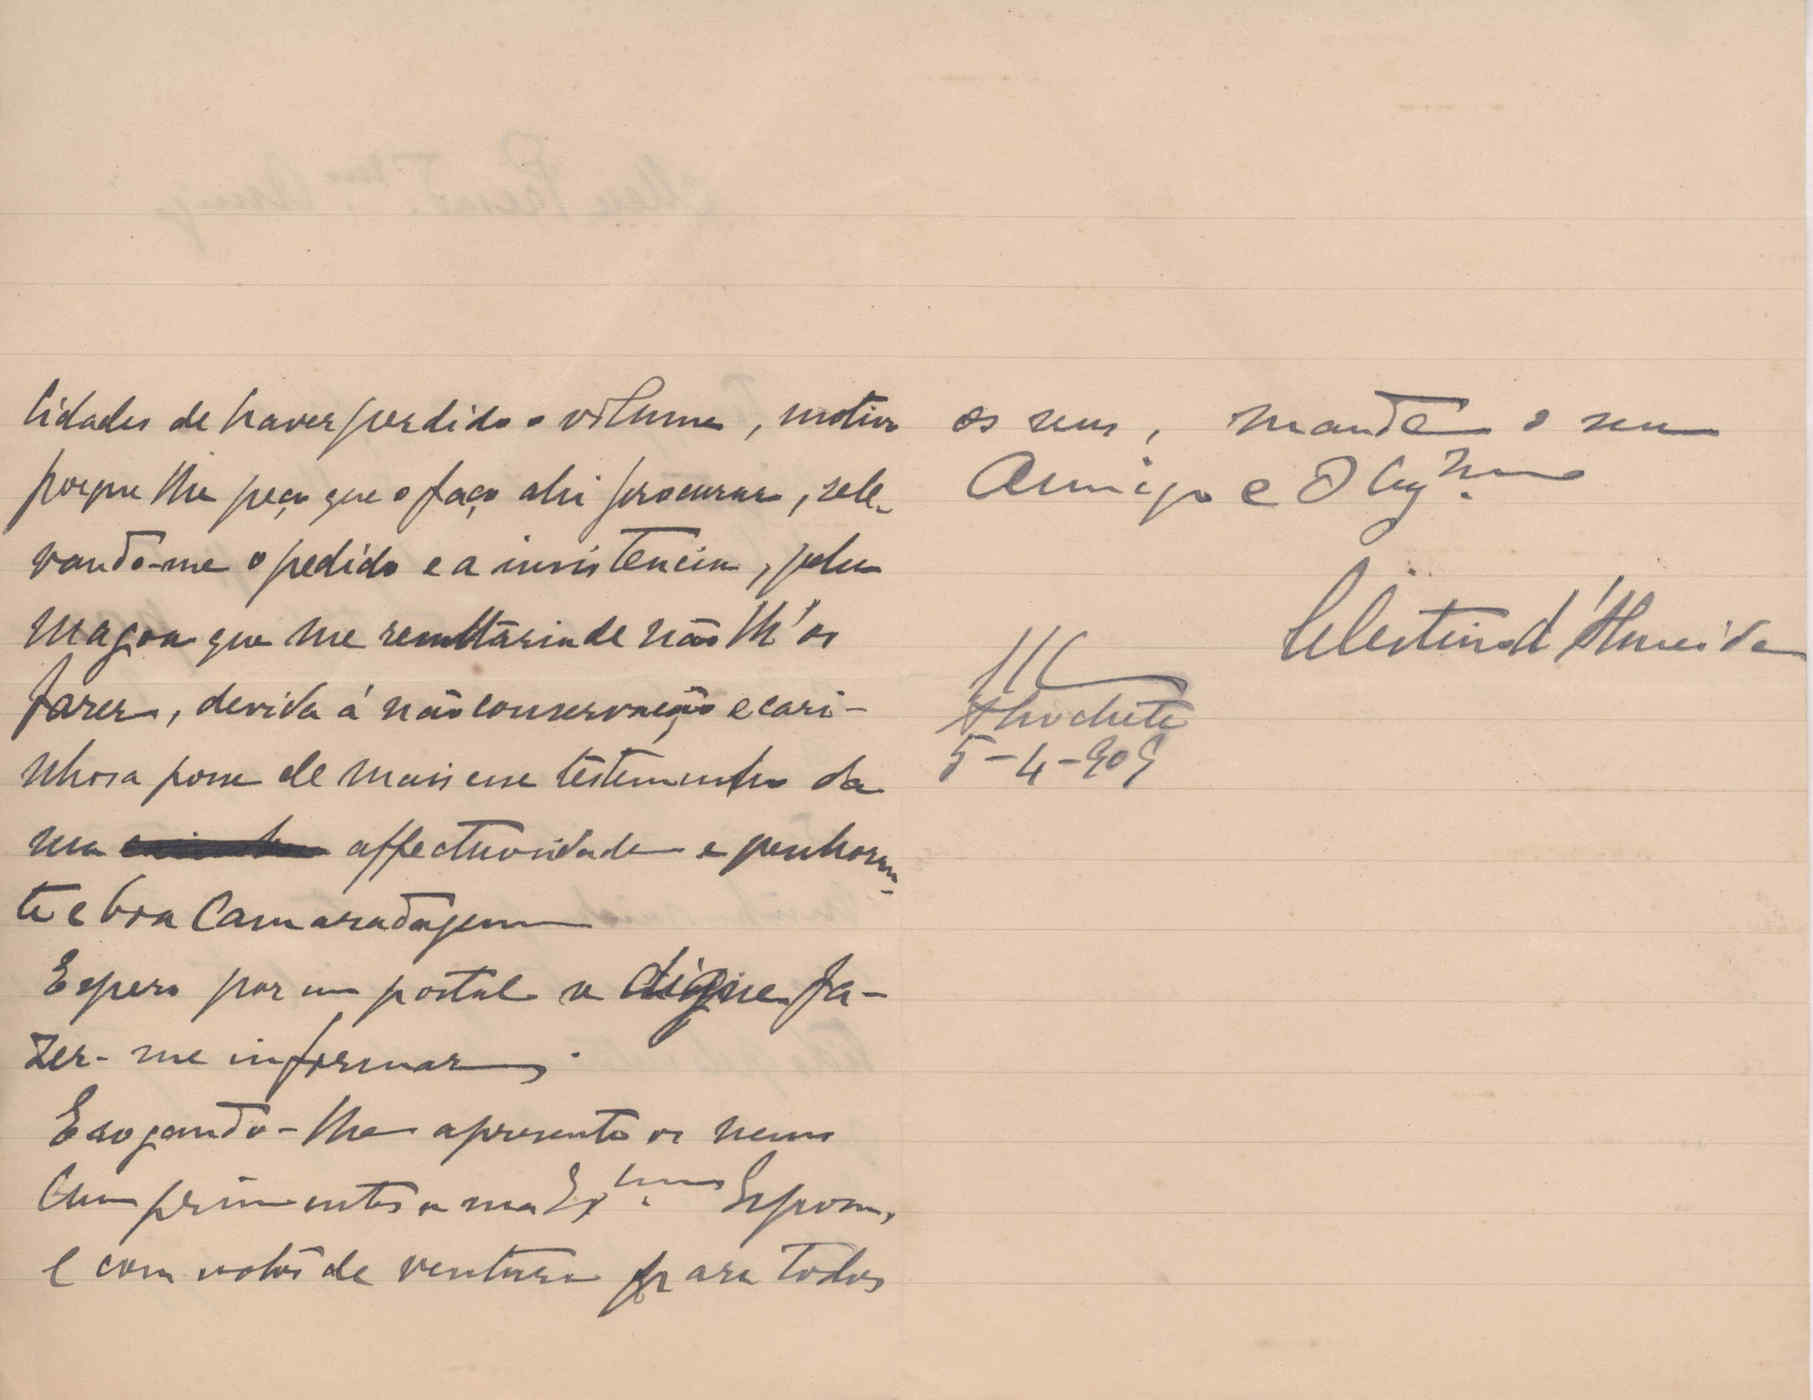 lidades de haver perdido o volume, motivo
porque lhe peço que o faça ahi procurar, rele-
vando-me o pedido e a insistencia, pela
magoa que me resultaria de não lh'os
fazer, devida á não conservação e cari-
nhosa posse de mais esse testemunho da
sua affectuosidade e penhoran-
te e boa camaradagem
Espero por um postal se digne fa-
zer-me informar.
E rogando-lhe apresente os meus
Cumprimentos a sua Ex.ma Esposa,
e com votos de ventura para todos
os seus, mande o seu
Amigo e Obg.mo
Celestino d'Almeida
S/C
Alcochete
5-4-909